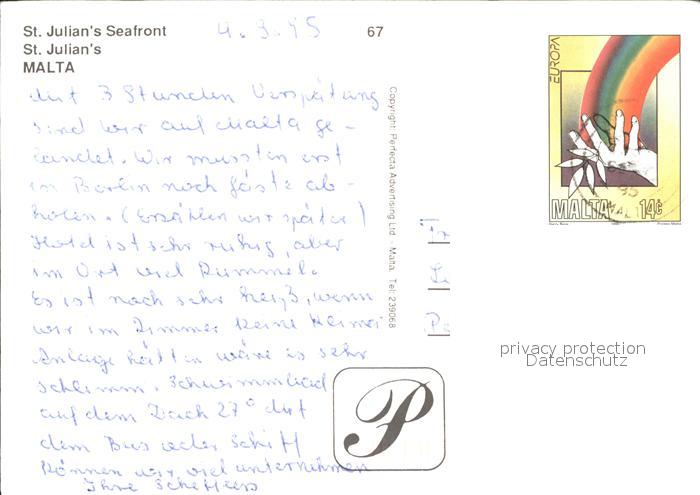 St. Julian's Seafront
St. Julian's
MALTA
4.9.95
67
Mit 3 Stunden Verspätung
sind wir auf Malta ge-
landet. Wir mussten erst
in Berlin noch Gäste ab-
holen. (Erzählen wir später)
Hotel ist sehr ruhig, aber
im Ort viel Rummel.
Es ist noch sehr heiß, wenn
wir im Zimmer keine
Anlage hätten wäre es sehr
schlimm. Schwimmbad
auf dem Dach 27° Mit
dem Bus oder Schiff
können wir viel unternehmen
Ihre
Copyright: Perfecta Advertising Ltd. - Malta. Tel: 239068
P
EUROPA
MALTA 14c
privacy protection
Datenschutz